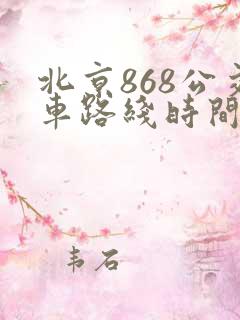 北京868公交
車路綫時間
韦石